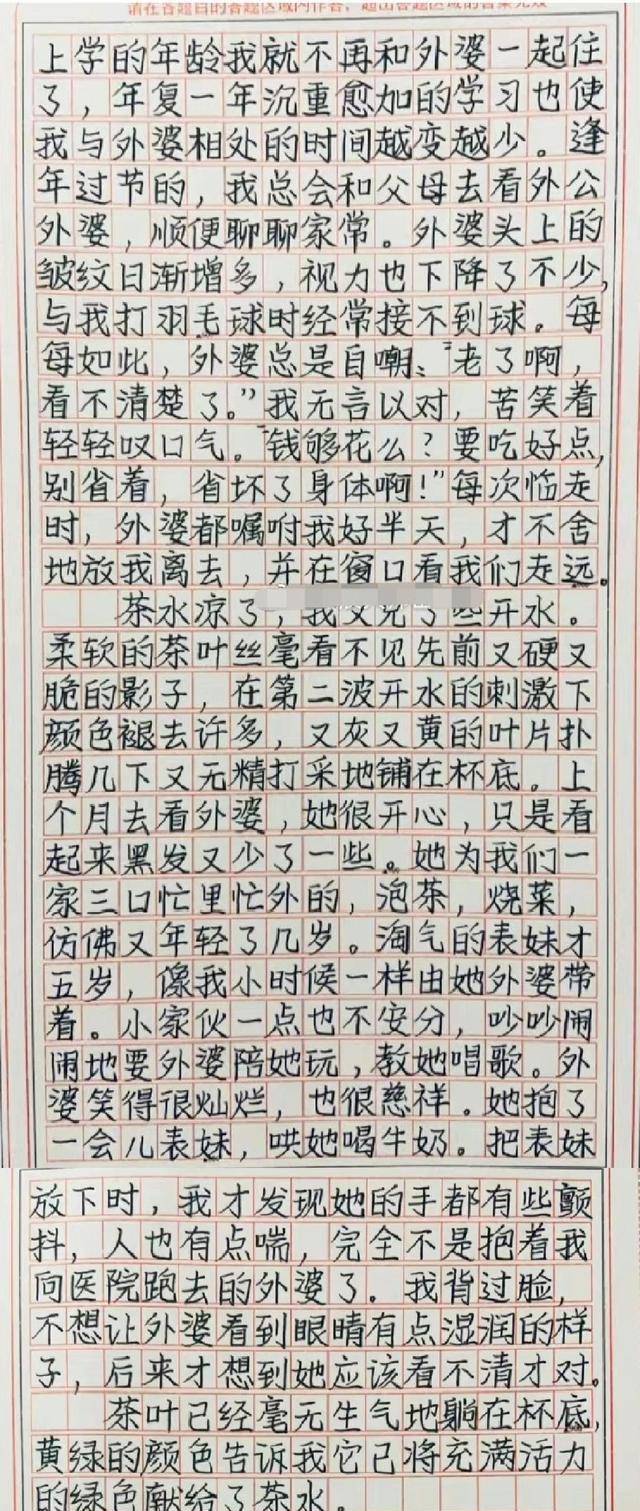 请在各题目的答题区域内作答，超出答题区域的答案无效
上学的年龄我就不再和外婆一起住
了，年复一年沉重愈加的学习也使
我与外婆相处的时间越变越少。逢
年过节的，我总会和父母去看外公
外婆，顺便聊聊家常。外婆头上的
皱纹日渐增多，视力也下降了不少，
与我打羽毛球时经常接不到球。每
每如此，外婆总是自嘲：“老了啊，
看不清楚了。”我无言以对，苦笑着
轻轻叹口气。“钱够花么？要吃好点，
别省着，省坏了身体啊！”每次临走
时，外婆都嘱咐我好半天，才不舍
地放我离去，并在窗口看我们走远。
茶水凉了，我又兑了些开水。
柔软的茶叶丝毫看不见先前又硬又
脆的影子，在第二波开水的刺激下
颜色褪去许多，又灰又黄的叶片扑
腾几下又无精打采地铺在杯底。上
个月去看外婆，她很开心，只是看
起来黑发又少了一些。她为我们一
家三口忙里忙外的，泡茶，烧菜，
仿佛又年轻了几岁。淘气的表妹才
五岁，像我小时候一样由她外婆带
着。小家伙一点也不安分，吵吵闹
闹地要外婆陪她玩，教她唱歌。外
婆笑得很灿烂，也很慈祥。她抱了
一会儿表妹，哄她喝牛奶。把表妹
放下时，我才发现她的手都有些颤
抖，人也有点喘，完全不是抱着我
向医院跑去的外婆了。我背过脸，
不想让外婆看到眼睛有点湿润的样
子，后来才想到她应该看不清才对。
茶叶已经毫无生气地躺在杯底，
黄绿的颜色告诉我它已将充满活力
的绿色献给了茶水。